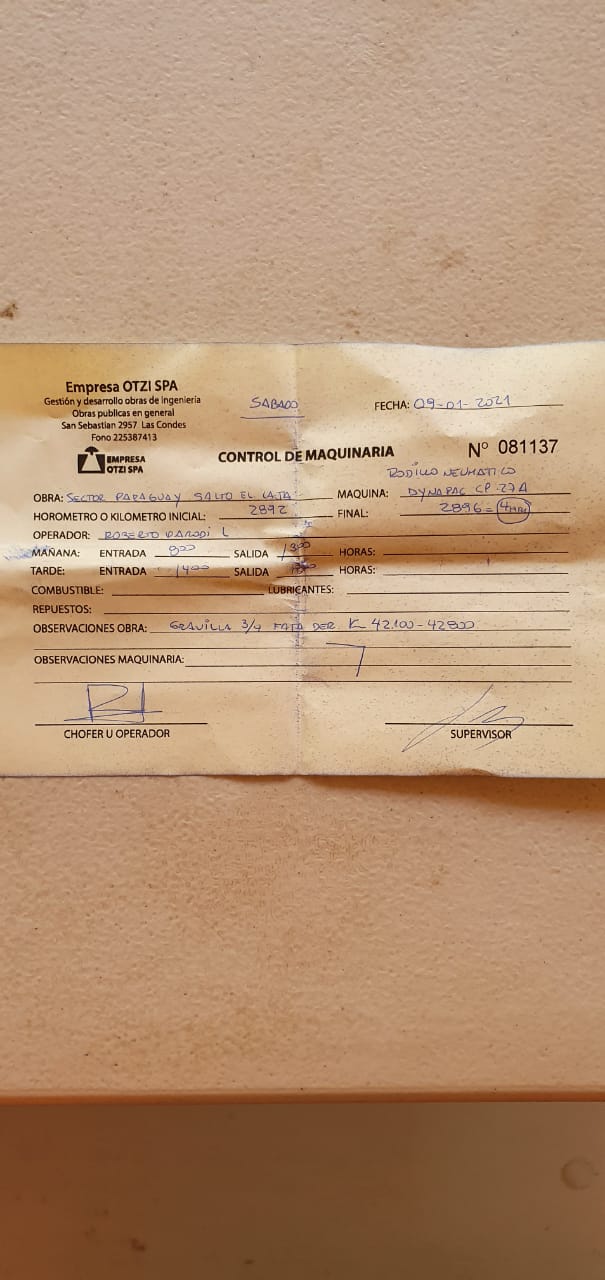 Empresa OTZI SPA
Gestión y desarrollo obras de ingeniería
Obras publicas en general
San Sebastian 2957 Las Condes
Fono 225387413
EMPRESA
OTZI SPA
SABADO
FECHA: 09-01-2021
CONTROL DE MAQUINARIA
Nº 081137
RODILLO NEUMATICO
OBRA: SECTOR PARAGUAY SALTO EL LAJA MAQUINA: DYNAPAC CP-27A
HOROMETRO O KILOMETRO INICIAL: 2892 FINAL: 2896=
OPERADOR: ROBERTO PARODI L
MAÑANA: ENTRADA 800 SALIDA 1300 HORAS:
TARDE: ENTRADA 1400 SALIDA HORAS:
COMBUSTIBLE: LUBRICANTES:
REPUESTOS:
OBSERVACIONES OBRA: GRAVILLA 3/4 DER K 42.100-42800
OBSERVACIONES MAQUINARIA:
CHOFER U OPERADOR SUPERVISOR